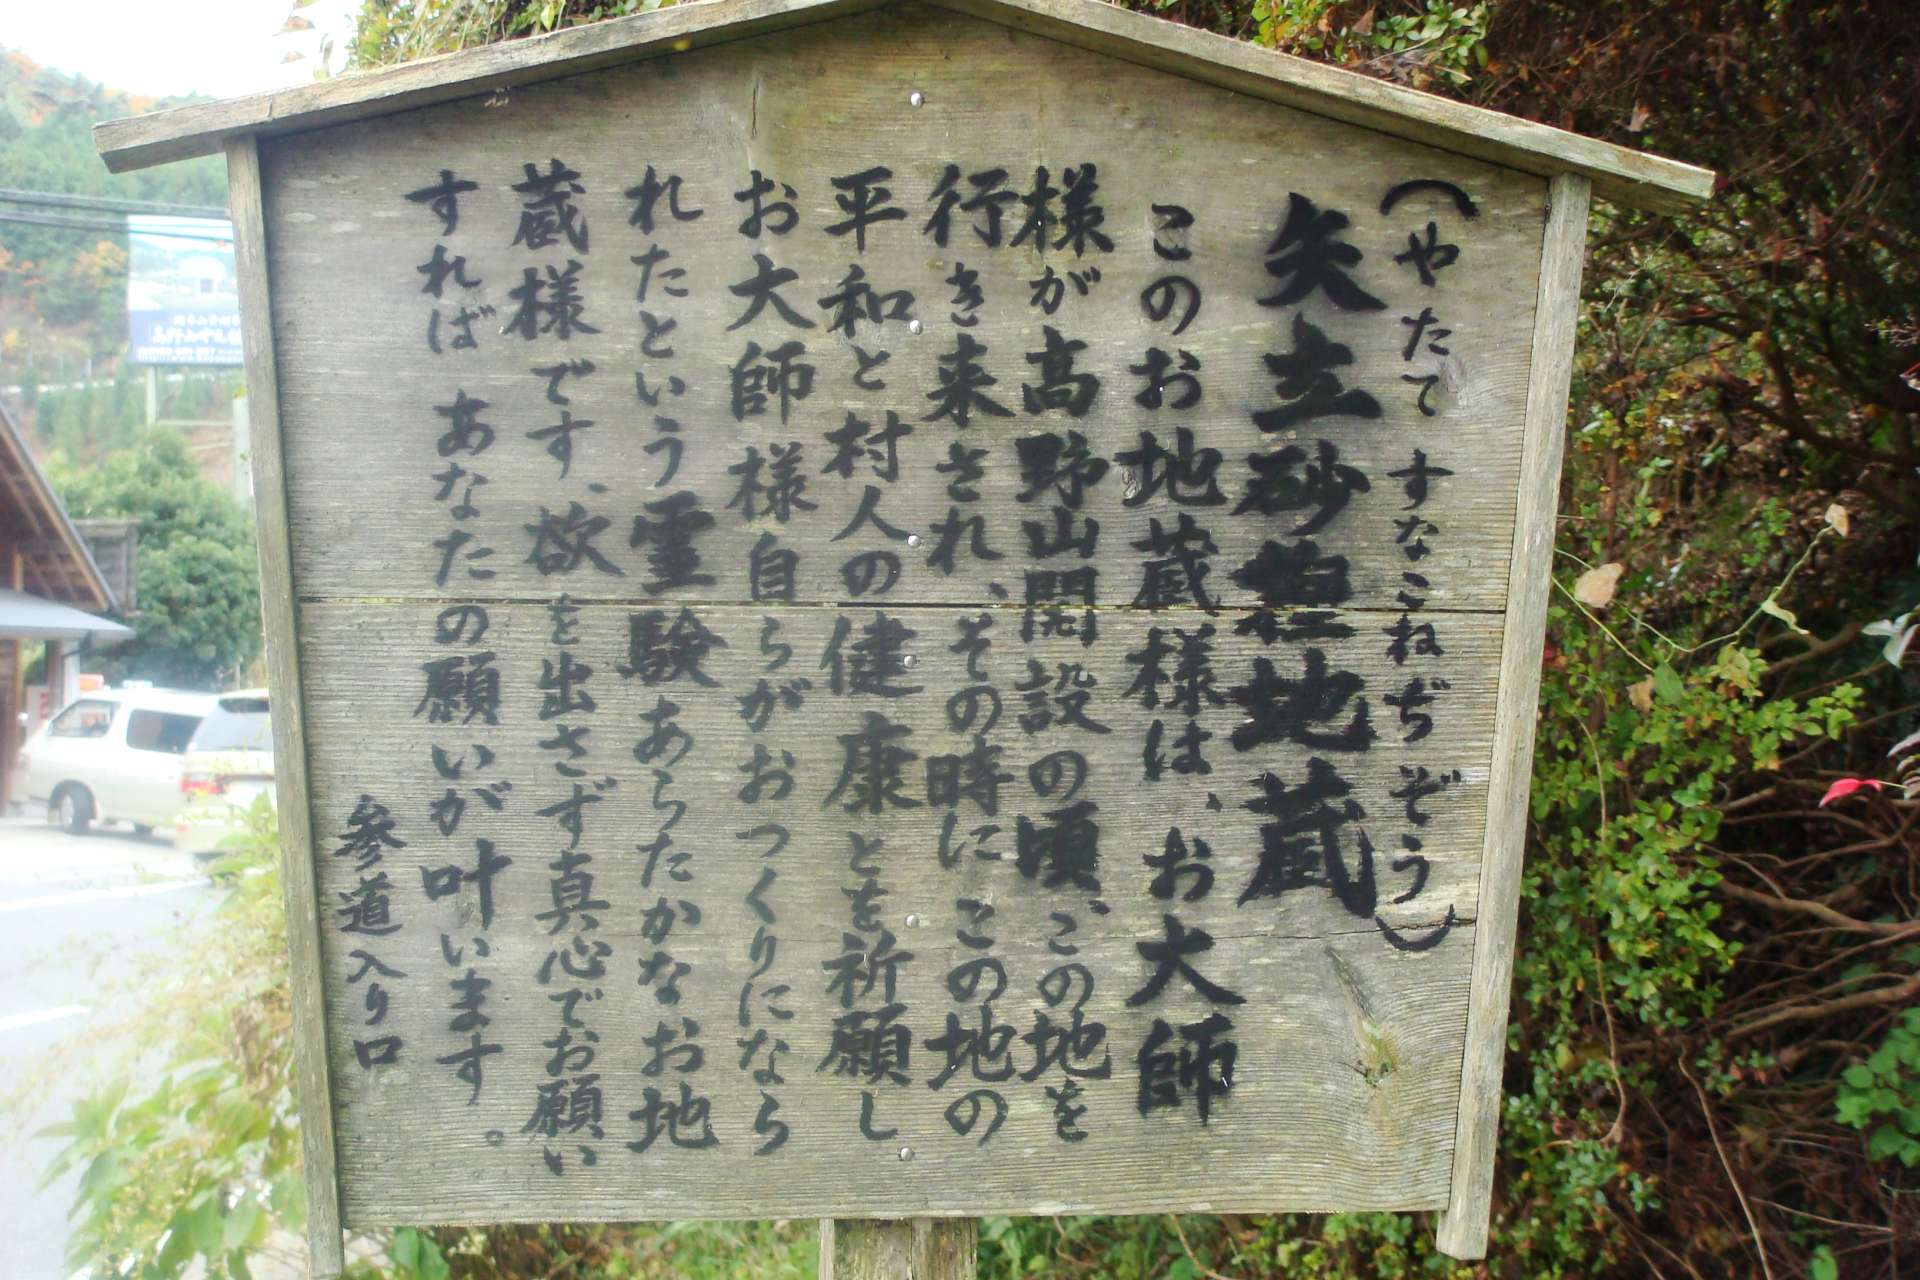 （やたて すなこねぢぞう）
矢立砂捏地蔵
このお地蔵様は、お大師
様が高野山開設の頃、この地を
行き来され、その時にこの地の
平和と村人の健康とを祈願し
お大師様自らがおつくりになら
れたという霊験あらたかなお地
蔵様です、欲を出さず真心でお願い
すれば あなたの願いが叶います。
参道入り口